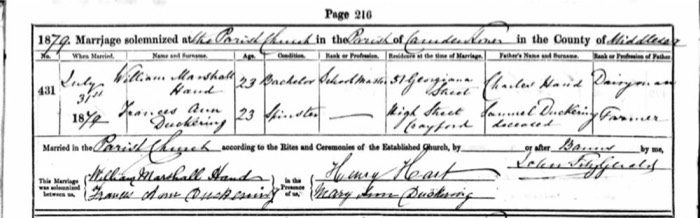 Page 216
1879. Marriage solemnized at the Parish Church in the Parish of Camden Town in the County of Middlesex
No. When Married. Name and Surname. Age. Condition. Rank or Profession. Residence at the time of Marriage. Father's Name and Surname. Rank or Profession of Father.
431 July 31st 1879 William Marshall Hand 23 Bachelor School Master 31 Georgiana Street Charles Hand Dairyman
Frances Ann Duckering 23 Spinster — High Street Crayford Samuel Duckering deceased Farmer
Married in the Parish Church according to the Rites and Ceremonies of the Established Church, by or after Banns by me,
John FitzGerald
This Marriage was solemnized between us, William Marshall Hand Frances Ann Duckering In the Presence of us, Henry Hart Mary Ann Duckering